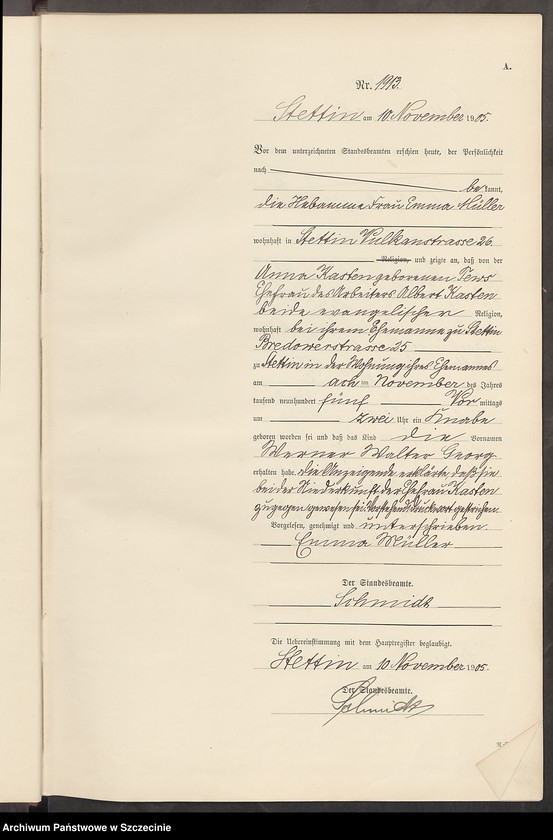 A.
Nr. 1913.
Stettin am 10 November 1905.
Vor dem unterzeichneten Standesbeamten erschien heute, der Persönlichkeit
nach
be kannt,
die Hebamme Frau Emma Müller
wohnhaft in Stettin Vulkanstrasse 26.
Religion, und zeigte an, daß von der
Anna Kasten geborenen Tews
Ehefrau des Arbeiters Albert Kasten
beide evangelischer Religion,
wohnhaft bei ihrem Ehemanne zu Stettin
Bredowerstrasse 25
zu Stettin in der Wohnung ihres Ehemannes
am acht November des Jahres
tausend neunhundert fünf Vor mittags
um zwei Uhr ein Knabe
geboren worden sei und daß das Kind die Vornamen
Werner Walter Georg
erhalten habe. die Anzeigende erklärte, daß sie
bei der Niederkunft der Ehefrau Kasten
zugegen gewesen sei. Vorstehend 1 Druckwort gestrichen.
Vorgelesen, genehmigt und unterschrieben.
Emma Müller
Der Standesbeamte.
Schmidt
Die Uebereinstimmung mit dem Hauptregister beglaubigt.
Stettin am 10 November 1905.
Der Standesbeamte.
Schmidt
Archiwum Państwowe w Szczecinie